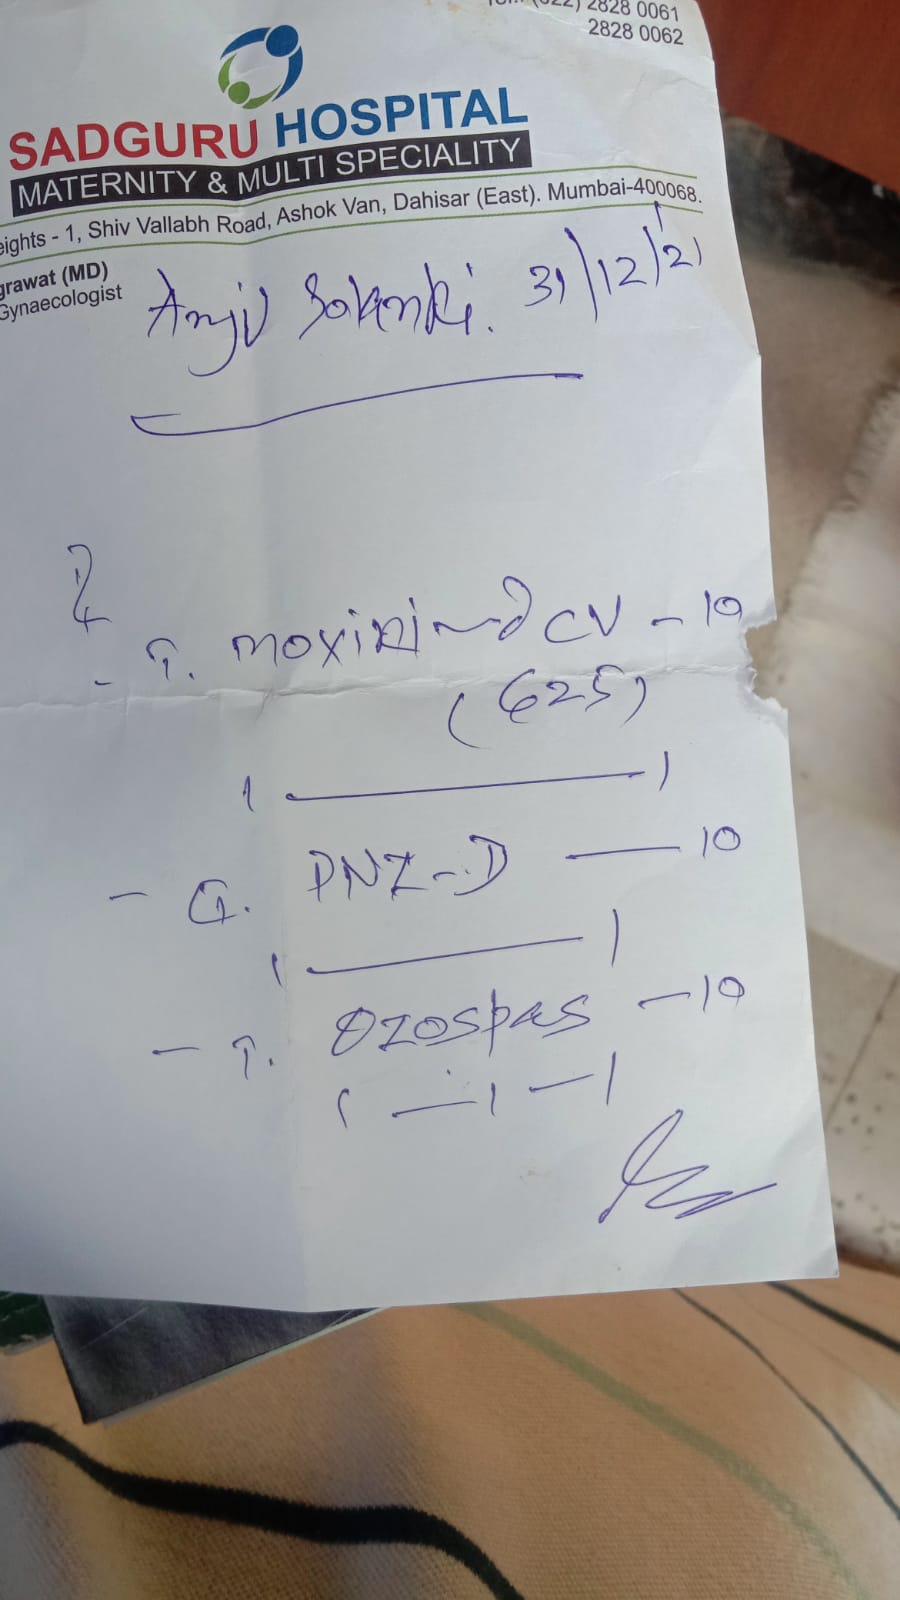 (022) 2828 0061
2828 0062
SADGURU HOSPITAL
MATERNITY & MULTI SPECIALITY
eights - 1, Shiv Vallabh Road, Ashok Van, Dahisar (East). Mumbai-400068.
grawat (MD)
Gynaecologist
Anju Solanki. 31/12/21
- T. moxikind CV - 10
(625)
1 — 1
- G. PNZ-D — 10
1 — 1
- T. Ozospas - 10
1 — 1 — 1